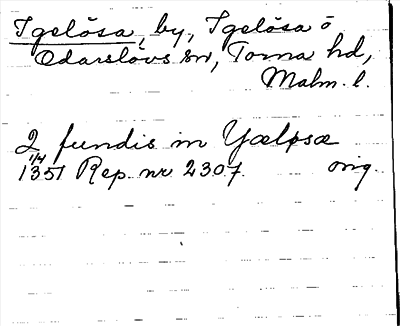 Igelösa, by, Igelösa o
Odarslövs sn, Torna hd,
Malm. l.
2 fundis in Yæløsæ
1351 1/4 Rep. nr 2307. orig.